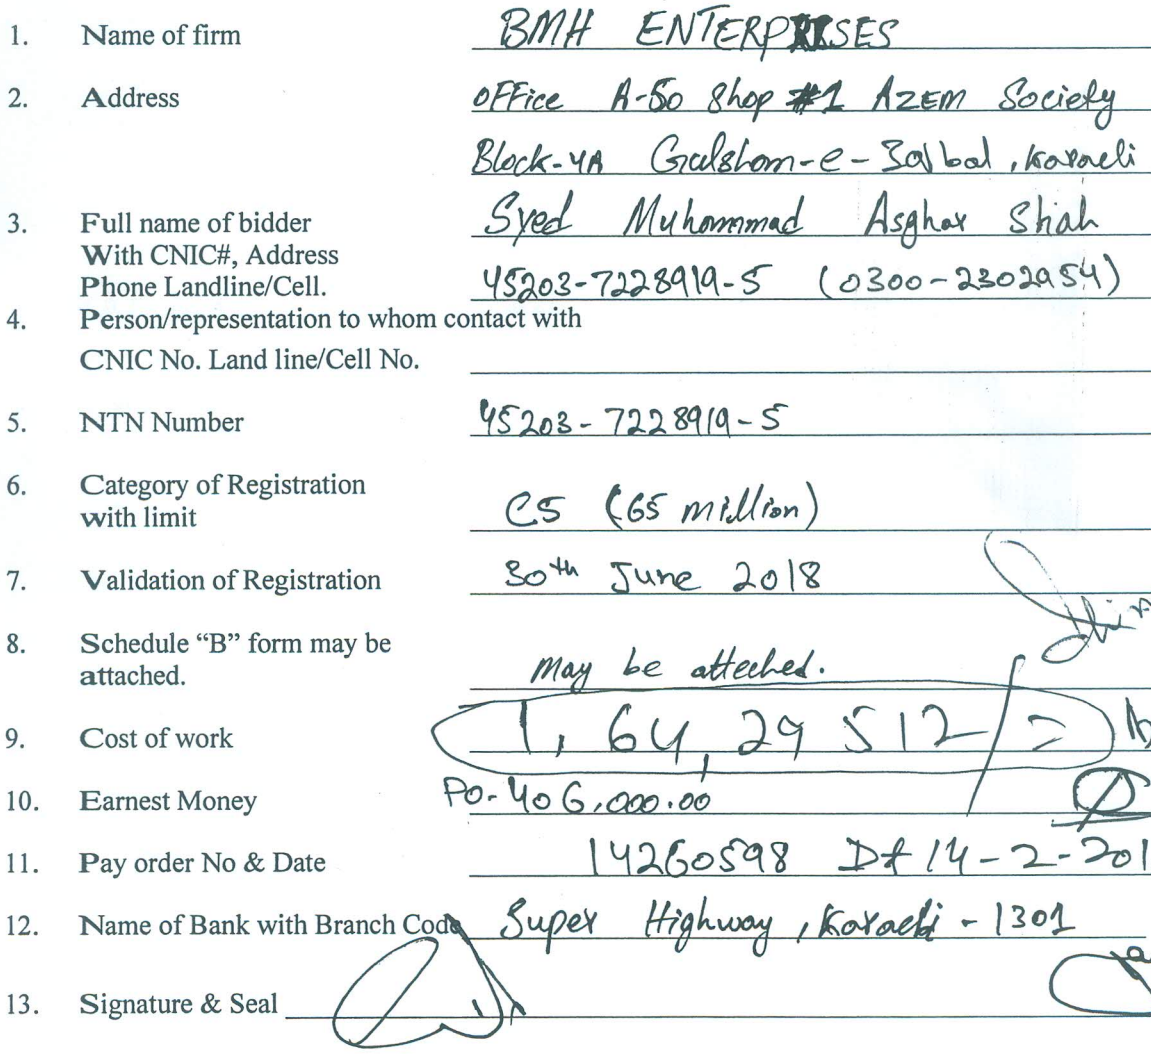 1. Name of firm BMH ENTERPRISES
2. Address OFFice A-50 Shop #1 AZEM Society
Block-4A Gulshan-e-Iqbal, Karachi
3. Full name of bidder Syed Muhammad Asghar Shah
With CNIC#, Address
Phone Landline/Cell. 45203-7228919-5 (0300-2302954)
4. Person/representation to whom contact with
CNIC No. Land line/Cell No.
5. NTN Number 45203-7228919-5
6. Category of Registration
with limit C5 (65 million)
7. Validation of Registration 30th June 2018
8. Schedule “B” form may be
attached. may be atteched.
9. Cost of work 1,64,29,512/=
10. Earnest Money PO-406,000.00
11. Pay order No & Date 14260598 Dt 14-2-201
12. Name of Bank with Branch Code Super Highway, Karachi - 1301
13. Signature & Seal